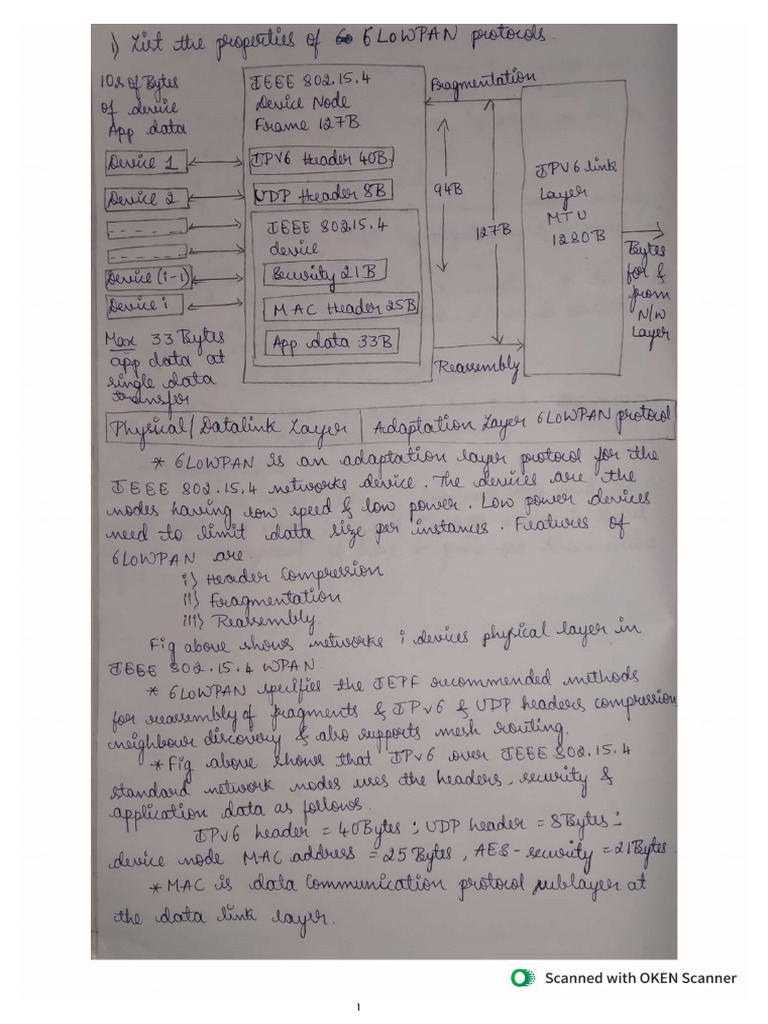 1) List the properties of 6LOWPAN protocols.
10s of Bytes
of device
App data
Device 1
Device 2
Device (i-1)
Device i
Max 33 Bytes
app data at
single data
transfer
IEEE 802.15.4
Device Node
Frame 127B
IPV6 Header 40B
UDP Header 8B
IEEE 802.15.4
device
Security 21B
MAC Header 25B
App data 33B
Fragmentation
94B
127B
Reassembly
IPV6 link
Layer
MTU
1280B
Bytes
for &
from
N/W
Layer
Physical/Datalink Layer
Adaptation Layer 6LOWPAN protocol
* 6LOWPAN is an adaptation layer protocol for the
IEEE 802.15.4 networks device. The devices are the
nodes having low speed & low power. Low power devices
need to limit data size per instances. Features of
6LOWPAN are
i) Header Compression
ii) Fragmentation
iii) Reassembly.
Fig above shows networks i devices physical layer in
IEEE 802.15.4 WPAN.
* 6LOWPAN specifies the IEPF recommended methods
for reassembly of fragments & IPv6 & UDP headers compression
neighbour discovery & also supports mesh routing.
* Fig above shows that IPV6 over IEEE 802.15.4
standard network nodes uses the headers, security &
application data as follows.
IPV6 header = 40Bytes; UDP header = 8Bytes;
device node MAC address = 25 Bytes, AES-security = 21Bytes.
* MAC is data Communication protocol sublayer at
the data link layer.
Scanned with OKEN Scanner
1